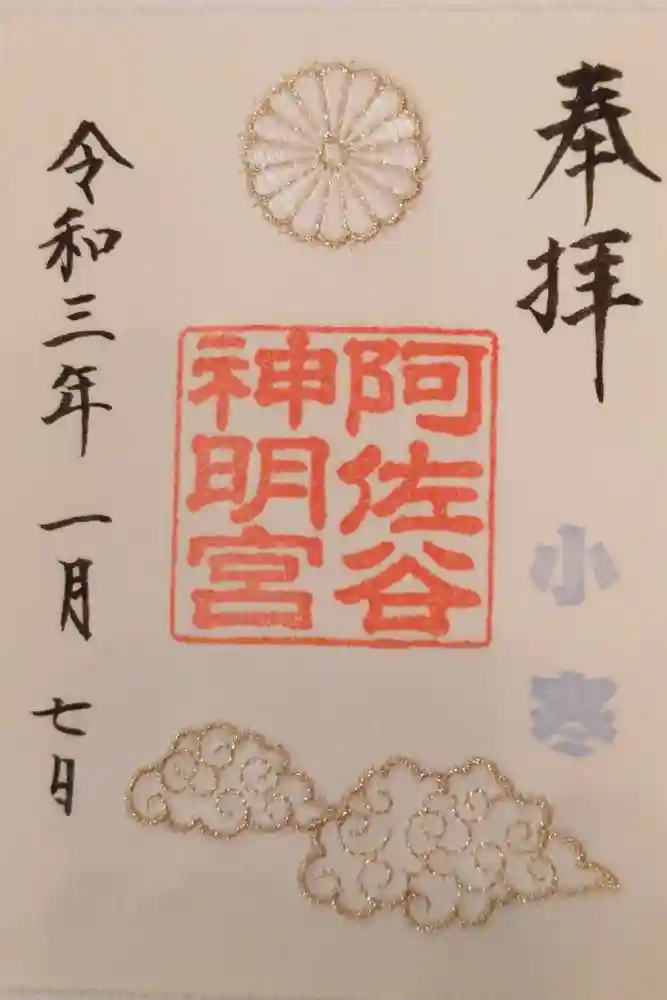 奉拝
小寒
阿佐谷
神明宮
令和三年 一月 七日